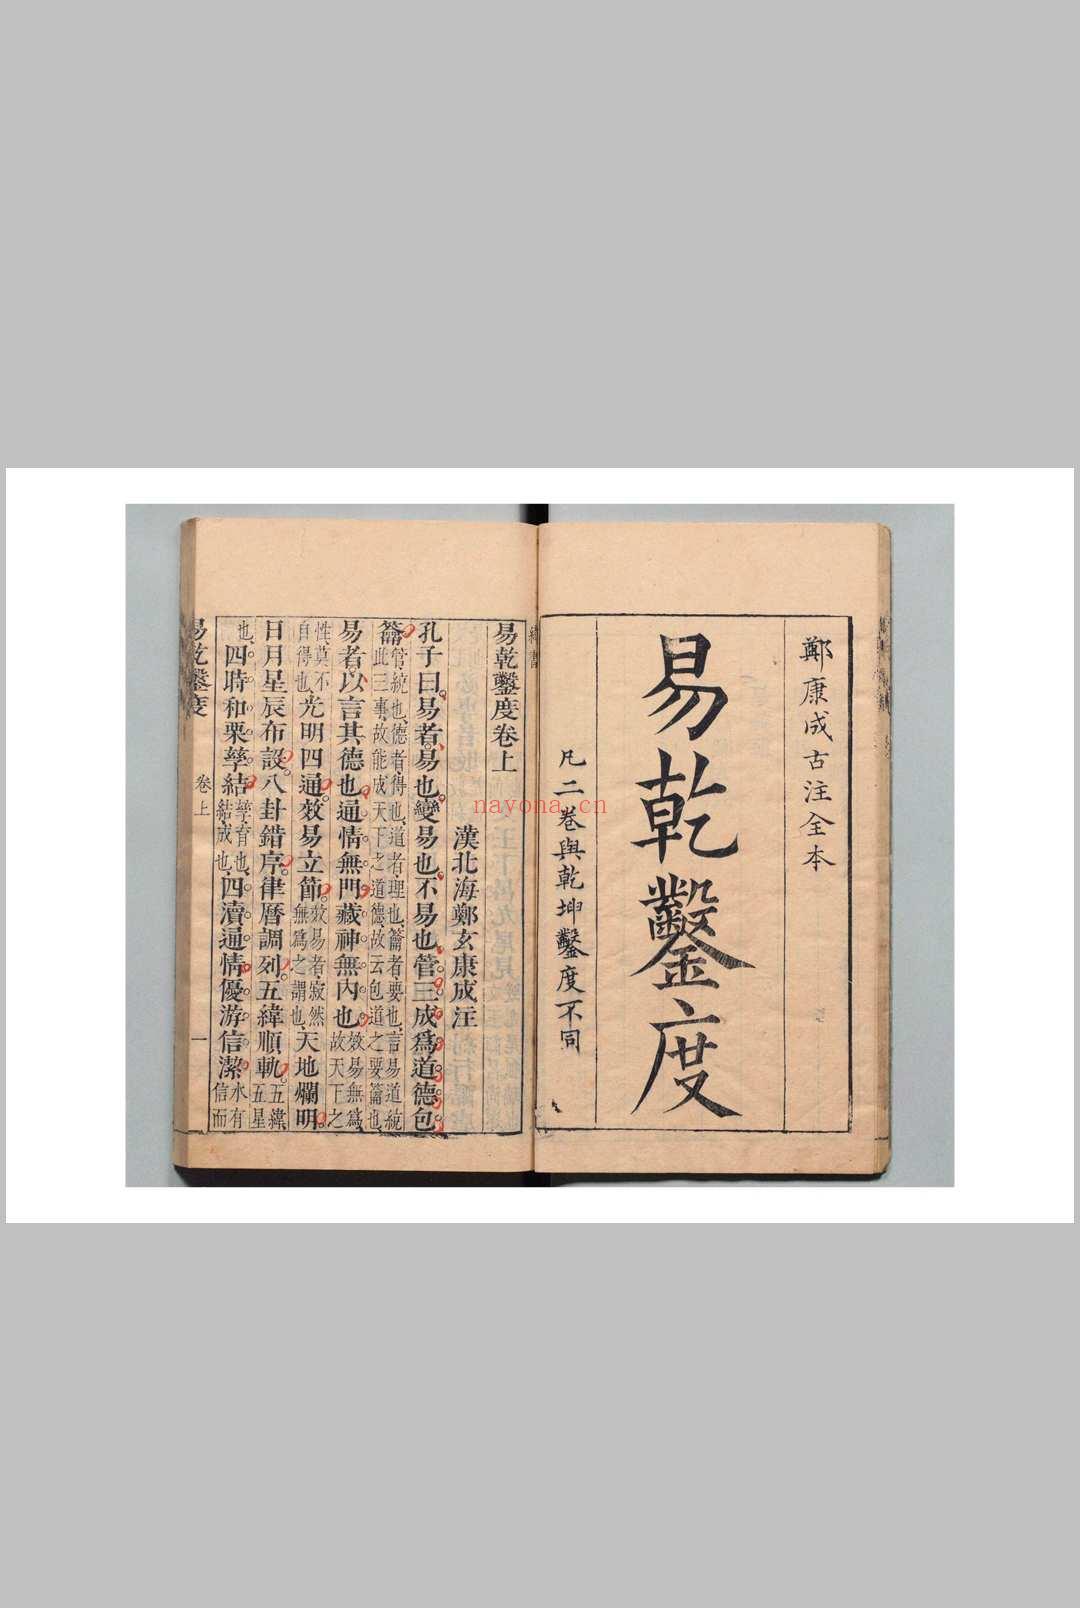 鄭康成古注全本
易乾鑿度
凡二卷與乾坤鑿度不同
易乾鑿度卷上
漢北海鄭玄康成注
孔子曰易者易也變易也不易也管三成爲道德包
籥管統也德者得也道者理也籥者要也言易道統此三事故能成天下之道德故云包道之要籥也
易者以言其德也通情無門藏神無內也效易無爲故天下之
性莫不自得也光明四通效易立節效易者寂然無爲之謂也天地爛明
日月星辰布設八卦錯序律曆調列五緯順軌五緯五星
也四時和栗孳結孳育也結成也四瀆通情優游信潔水有信而
易乾鑿度
卷上
一
nayona.cn